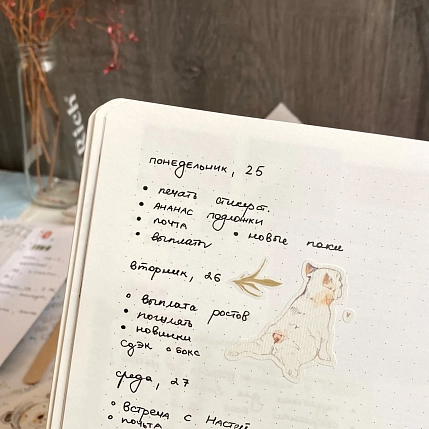 понедельник, 25
• печать стикерп.
• АНАНАС подложки
• почта
• выплаты • новые паки
вторник, 26
• выплата ростов
• погулять
• новинки
сдэк • бокс
среда, 27
• встреча с Настей
• почта
Rich